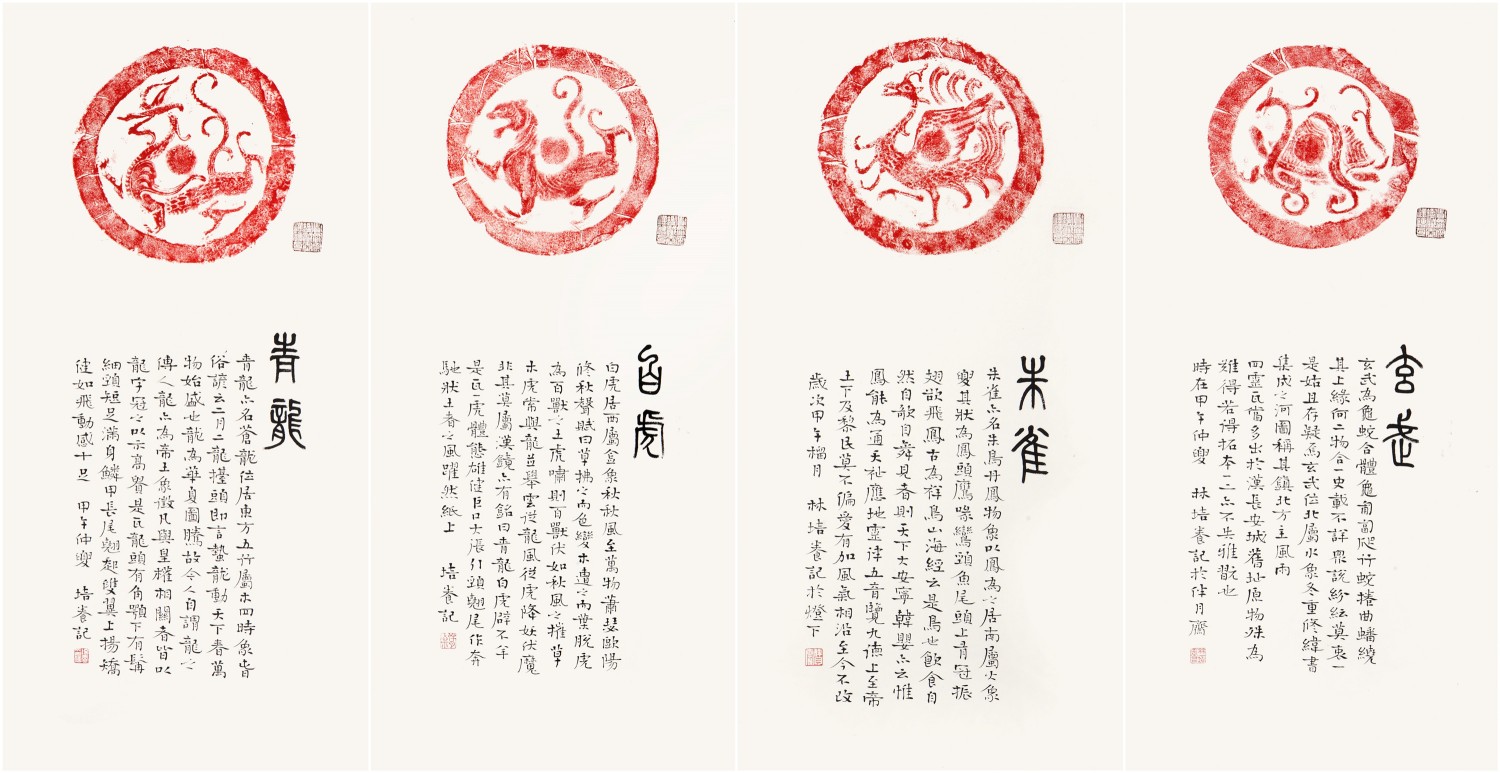 青龍
青龍亦名蒼龍位居東方五行屬木四時象春
俗諺云二月二龍擡頭即言蟄龍動天下春萬
物始盛也龍為華夏圖騰故令人自謂龍之
傳人龍亦為帝王象徵凡與皇權相關者皆以
龍字冠之以示高貴是瓦龍頭有角顎下有髯
細頸短足滿身鱗甲長尾翹起雙翼上揚矯
健如飛動感十足 甲午仲夏 培養記
白虎
白虎居西屬金象秋秋風至萬物蕭瑟歐陽
修秋聲賦曰草拂之而色變木遭之而葉脫虎
為百獸之王虎嘯則百獸伏如秋風之摧草
木虎常與龍並舉雲從龍風從虎降妖伏魔
非其莫屬漢鏡亦有銘曰青龍白虎辟不羊
是瓦虎體態雄健巨口大張引頸翹尾作奔
馳狀王者之風躍然紙上 培養記
朱雀
朱雀亦名朱鳥丹鳳物象以鳳為之居南屬火象
夏其狀為鳳頭鷹喙鸞頸魚尾頭上有冠振
翅欲飛鳳古為祥鳥山海經云是鳥也飲食自
然自歌自舞見者則天下大安寧韓嬰亦云惟
鳳能為通天祉應地靈律五音覽九德上至帝
王下及黎民莫不偏愛有加風氣相沿至今不改
歲次甲午榴月 林培養記於燈下
玄武
玄武為龜蛇合體龜匍匐爬行蛇捲曲蟠繞
其上緣何二物合一史載不詳眾說紛紜莫衷一
是姑且存疑焉玄武位北屬水象冬重修緯書
集成之河圖稱其鎮北方主風雨
四靈瓦當多出於漢長安城舊址原物殊為
難得若得拓本一二亦不失雅翫也
時在甲午仲夏 林培養記於伴月齋